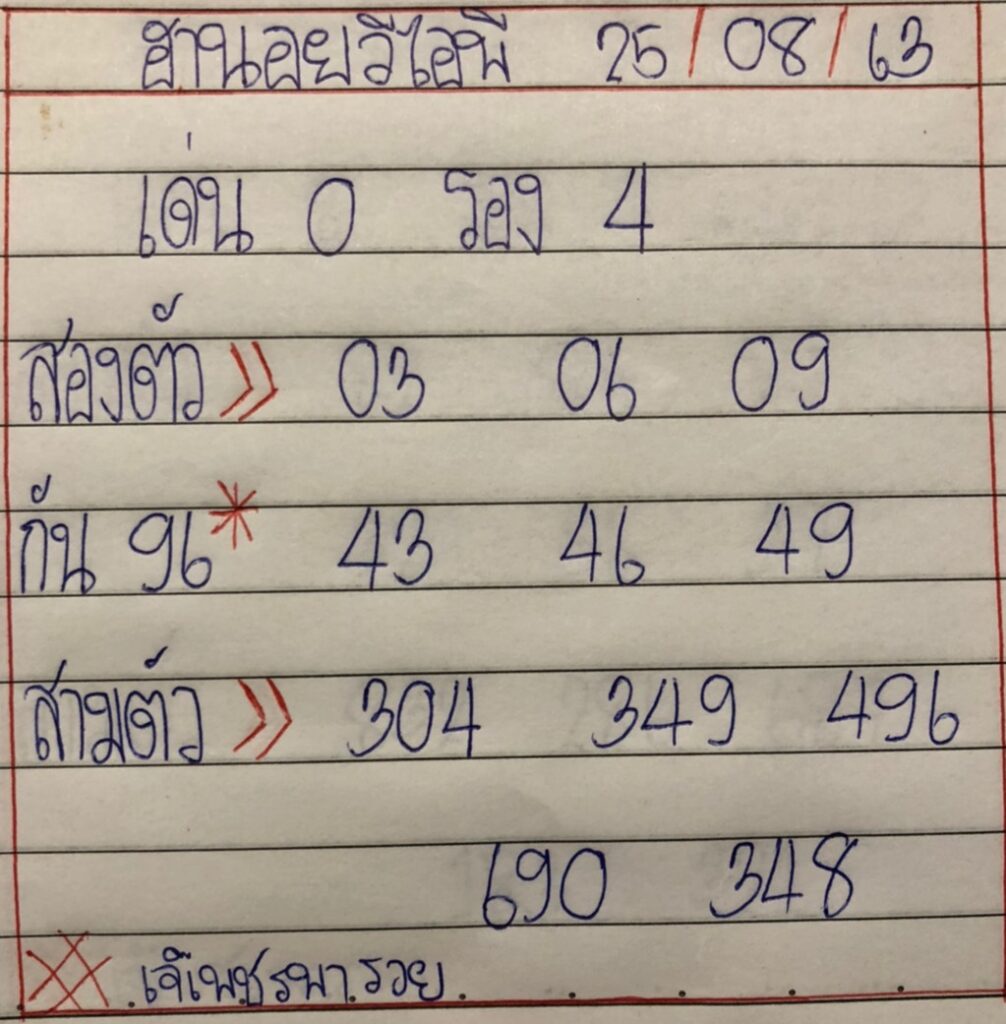 ฮานอยวีไอพี 25/08/63
เด่น 0 รอง 4
สองตัว >> 03 06 09
กัน 96* 43 46 49
สามตัว >> 304 349 496
690 348
.เจ๊เพชรพา.รวย.